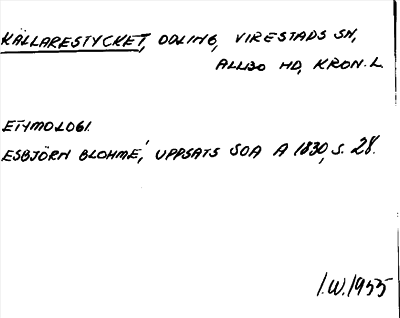 KÄLLARESTYCKET, ODLING, VIRESTADS SN,
ALLBO HD, KRON. L.
ETYMOLOGI.
ESBJÖRN BLOHMÉ, UPPSATS SOA A 1830, S. 28.
I.W. 1955